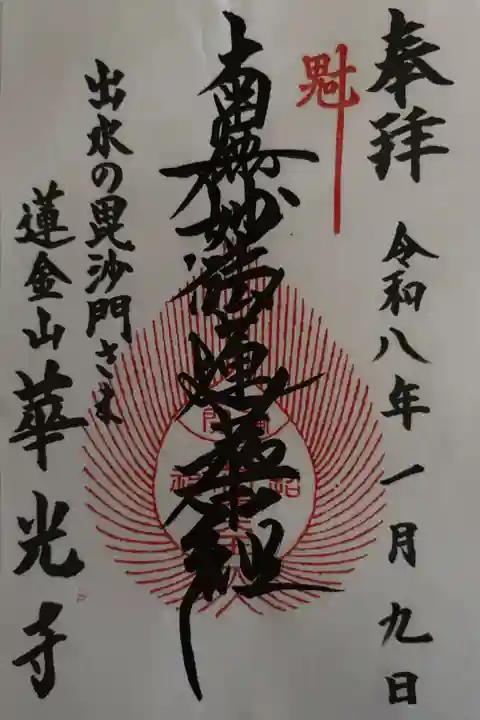 奉拝
令和八年一月九日
魁
南無妙法蓮華経
出水の毘沙門さま
蓮金山華光寺